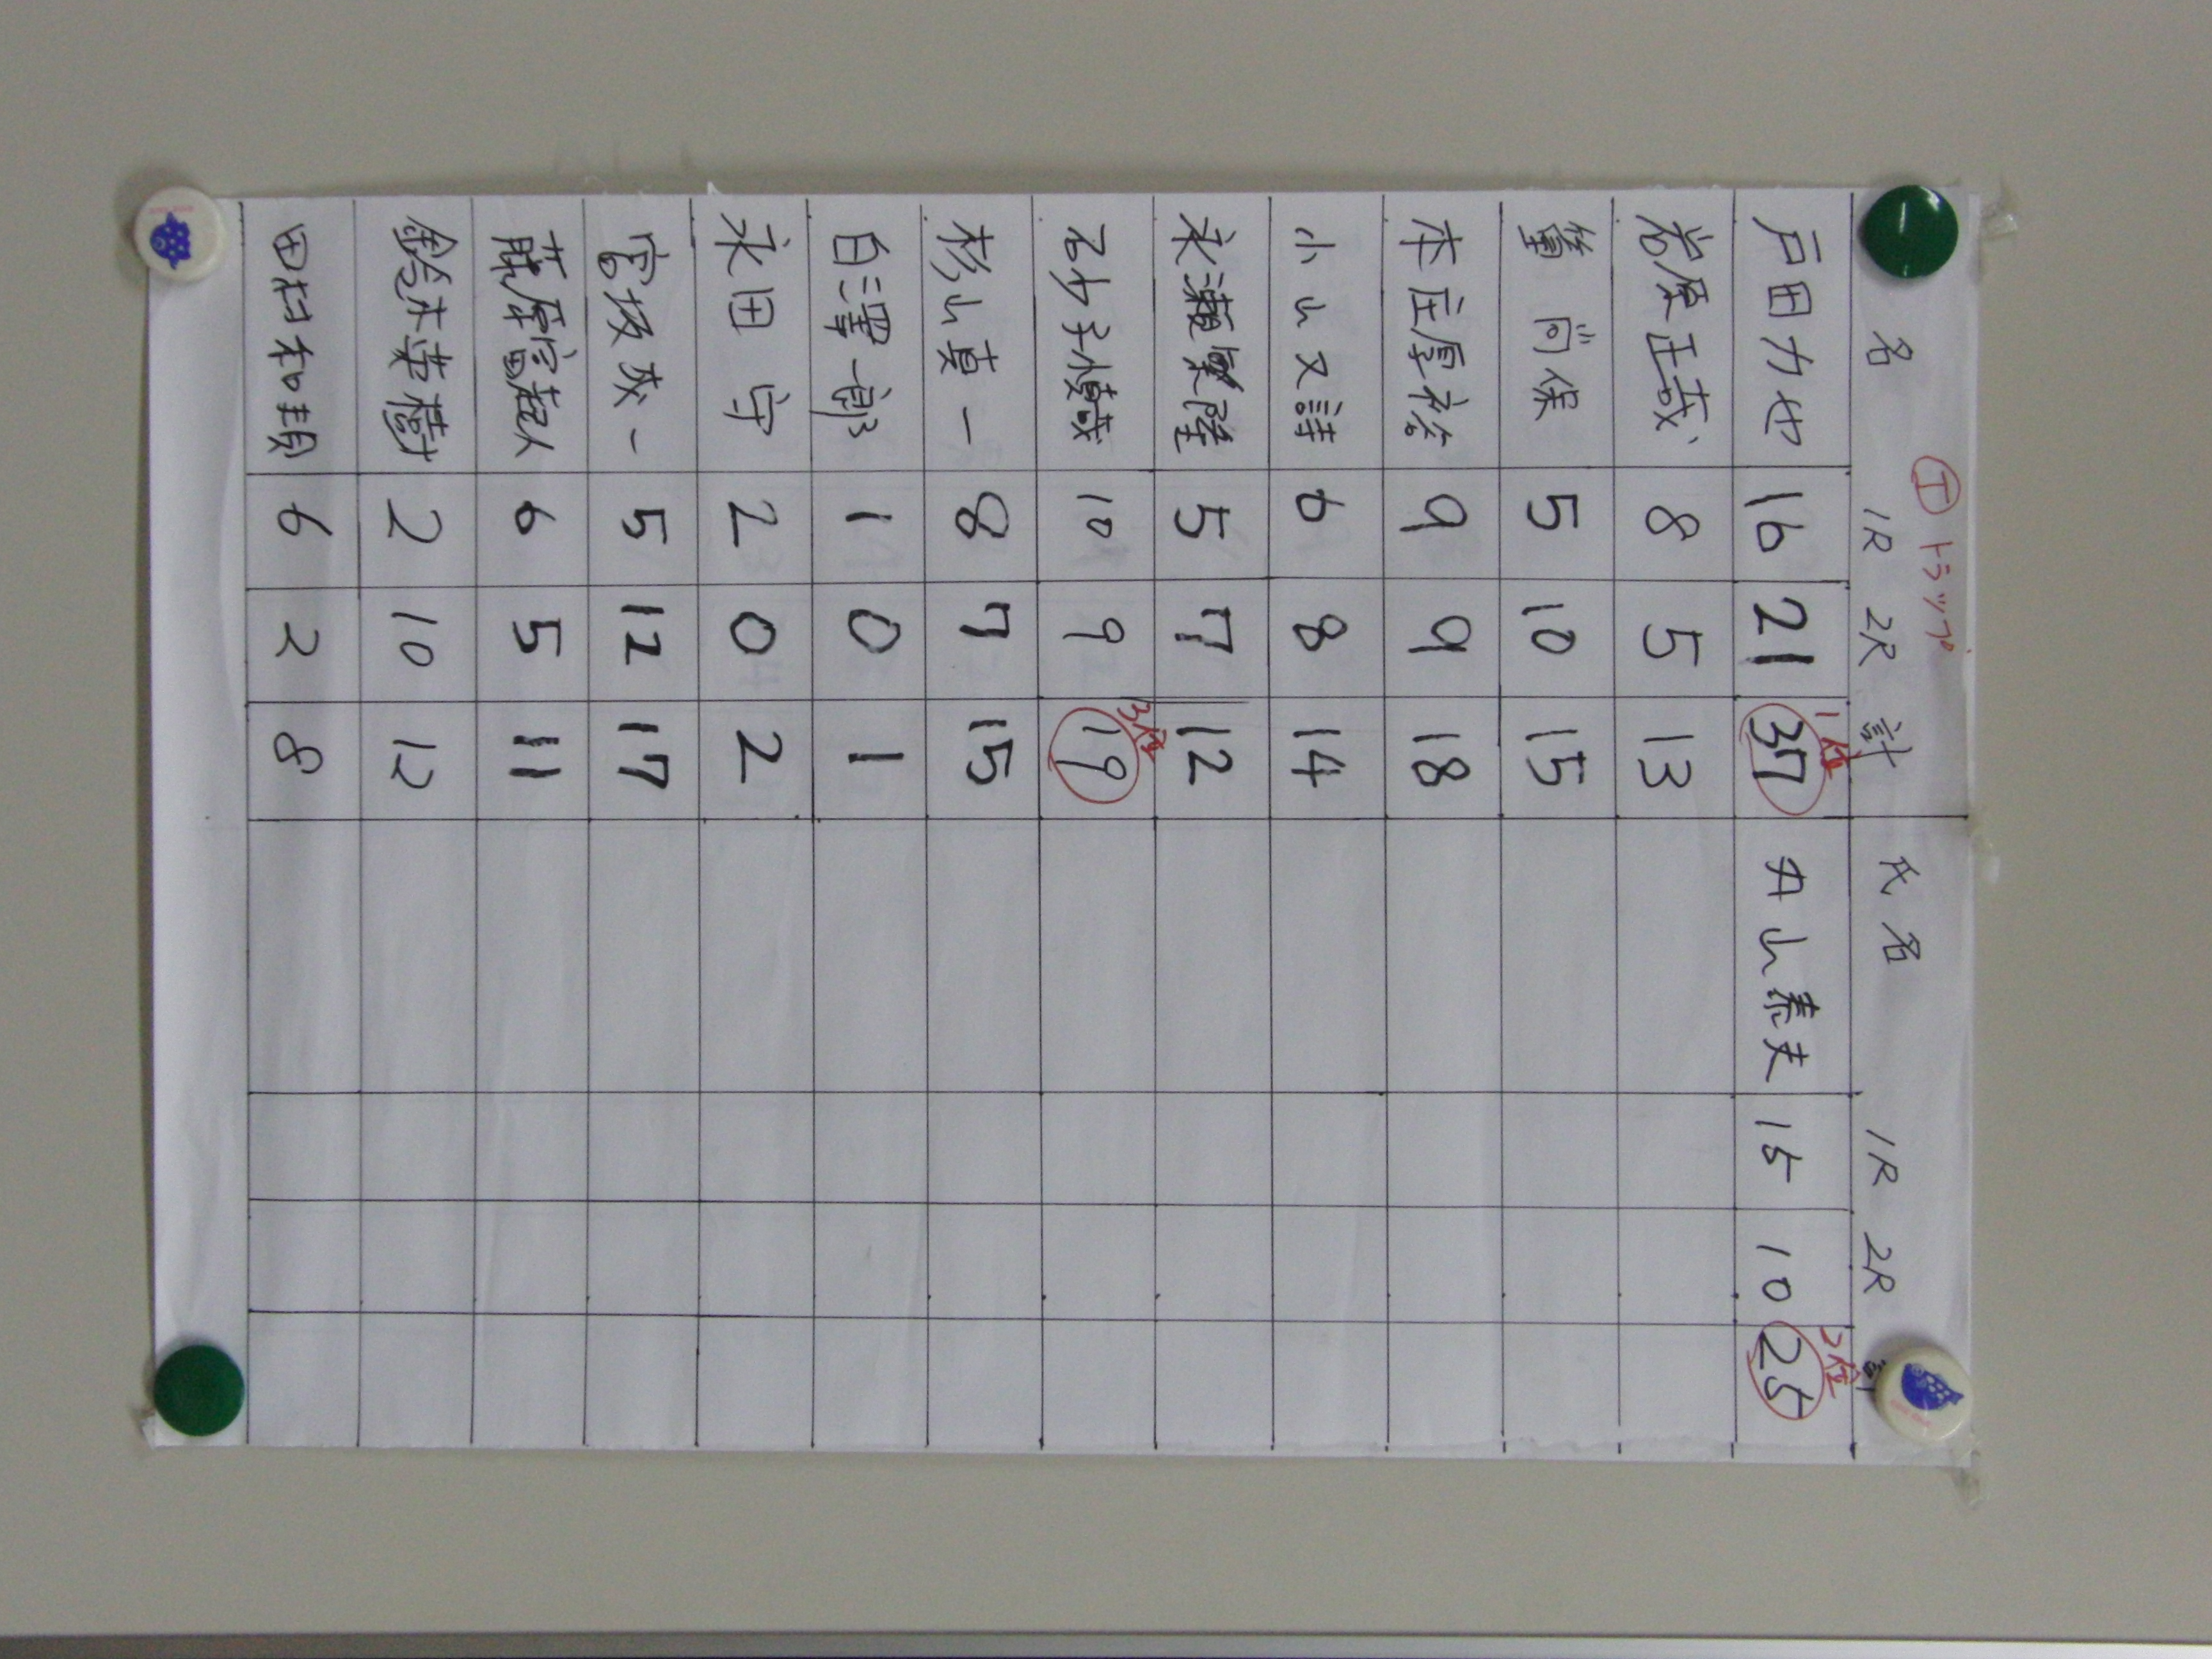 Ⓣ トラップ
名 1R 2R 計 氏名 1R 2R 計
戸田力也 16 21 37 1位 井山泰夫 15 10 25 2位
岩原正哉 8 5 13
5 10 15
本庄厚裕 9 9 18
小山又詩 6 8 14
永瀬 隆 5 7 12
慎哉 10 9 19 3位
杉山真一 8 7 15
白澤一郎 1 0 1
永田 守 2 0 2
宮坂成一 5 12 17
藤原富起人 6 5 11
鈴木英樹 2 10 12
田村和頼 6 2 8